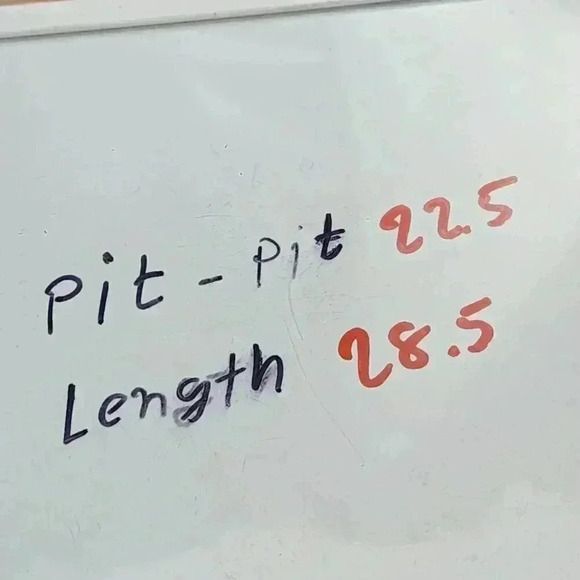 Pit - Pit 22.5
Length 28.5